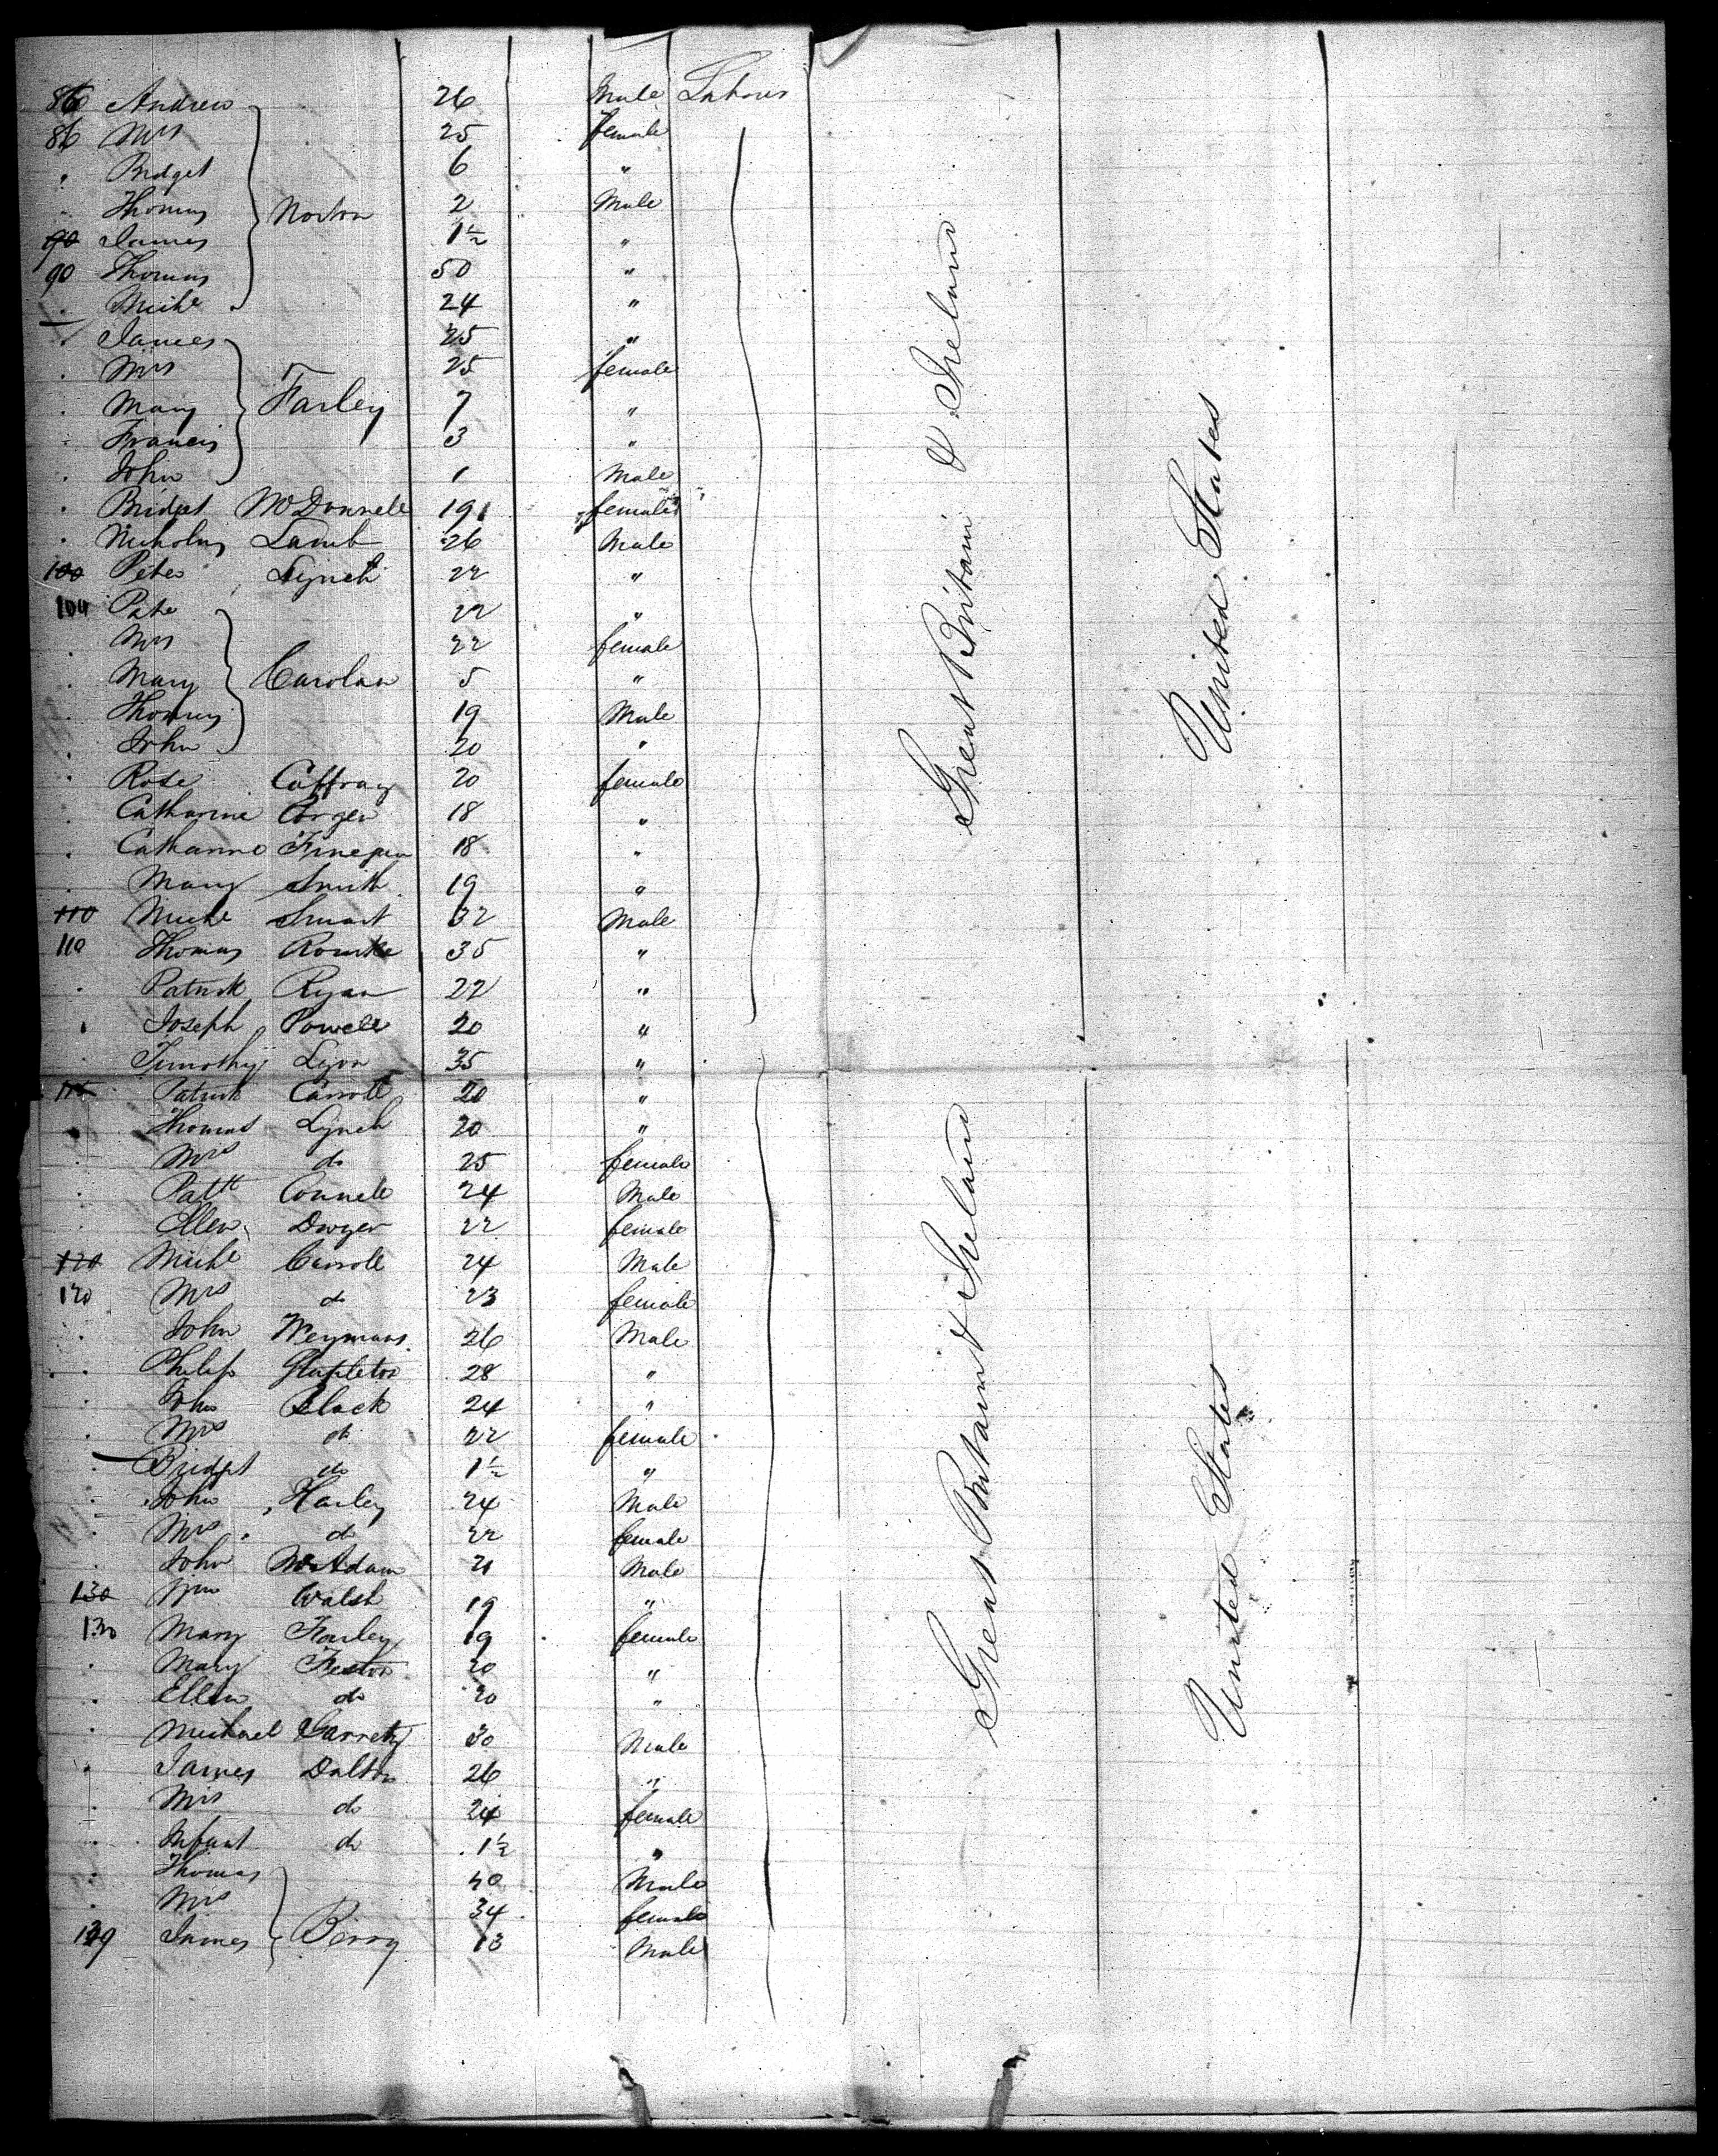 86 Andrew 26 Male Labour
86 Mrs 25 female
" Bridget 6 "
" Thomas Norton 2 Male
90 James 1½ "
90 Thomas 50 "
. Michl 24 "
. James 25 "
. Mrs 25 female
. Mary Farley 7 "
. Francis 3 "
. John 1 Male
. Bridget McDonnell 19 female
. Nicholas Lamb 26 Male
100 Peter Lynch 22 "
100 Pate 22 "
. Mrs 22 female
. Mary Carolan 5 "
. Thomas 19 Male
. John 20 "
. Rose Caffray 20 female
. Catharine Corgen 18 "
. Catharine Finegan 18 "
. Mary Smith 19 "
110 Michl Smart 32 Male
110 Thomas Rourke 35 "
. Patrick Ryan 22 "
. Joseph Powell 20 "
. Timothy Lyon 35 "
Patrick Carroll 20 "
. Thomas Lynch 20 "
. Mrs do 25 female
. Patk Connell 24 Male
. Ellen Dwyer 22 female
120 Michl Carroll 24 Male
120 Mrs do 23 female
. John Weymans 26 Male
. Philip Stapleton 28 "
. John Black 24 "
. Mrs do 22 female
. Bridget do 1½ "
. John Harley 24 Male
. Mrs do 22 female
. John McAdam 21 Male
130 Wm Walsh 19 "
130 Mary Farley 19 female
. Mary 20 "
. Ellen do 20 "
. Michael Garrety 30 Male
. James Dalton 26 "
. Mrs do 24 female
. Infant do 1½ "
. Thomas 40 Male
. Mrs 34 female
139 James Berry 13 Male
Great Britain & Ireland
United States
Great Britain & Ireland
United States